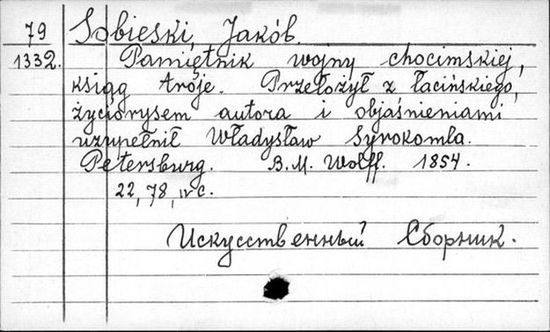 79 Sobieski, Jakób.
1332. Pamiętnik wojny chocimskiej,
ksiąg troje. Przełożył z łacińskiego,
życiorysem autora i objaśnieniami
uzupełnił Władysław Syrokomla.
Petersburg. B.M. Wolff. 1854.
22, 78, IV c.
Искусственный Сборник.